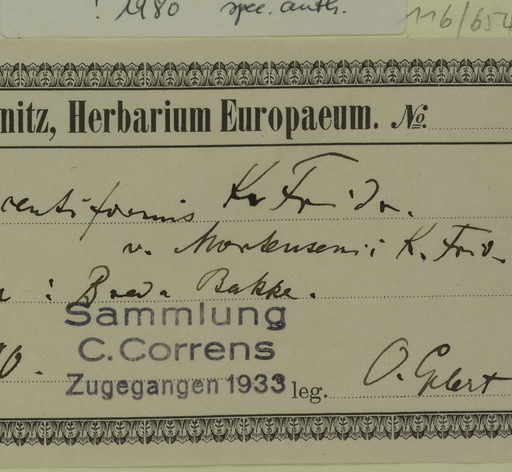 ! 1980 spec. auth.
116/654
nitz, Herbarium Europaeum. No.
rentiformis K. Fridr.
v. Mortensenii K. Frid.
: Breda Bakke.
Sammlung
C. Correns
Zugegangen 1933 leg. O. Gelert